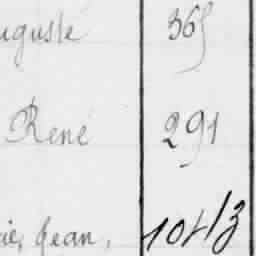 uguste 365
René 291
rie, Jean, 1043